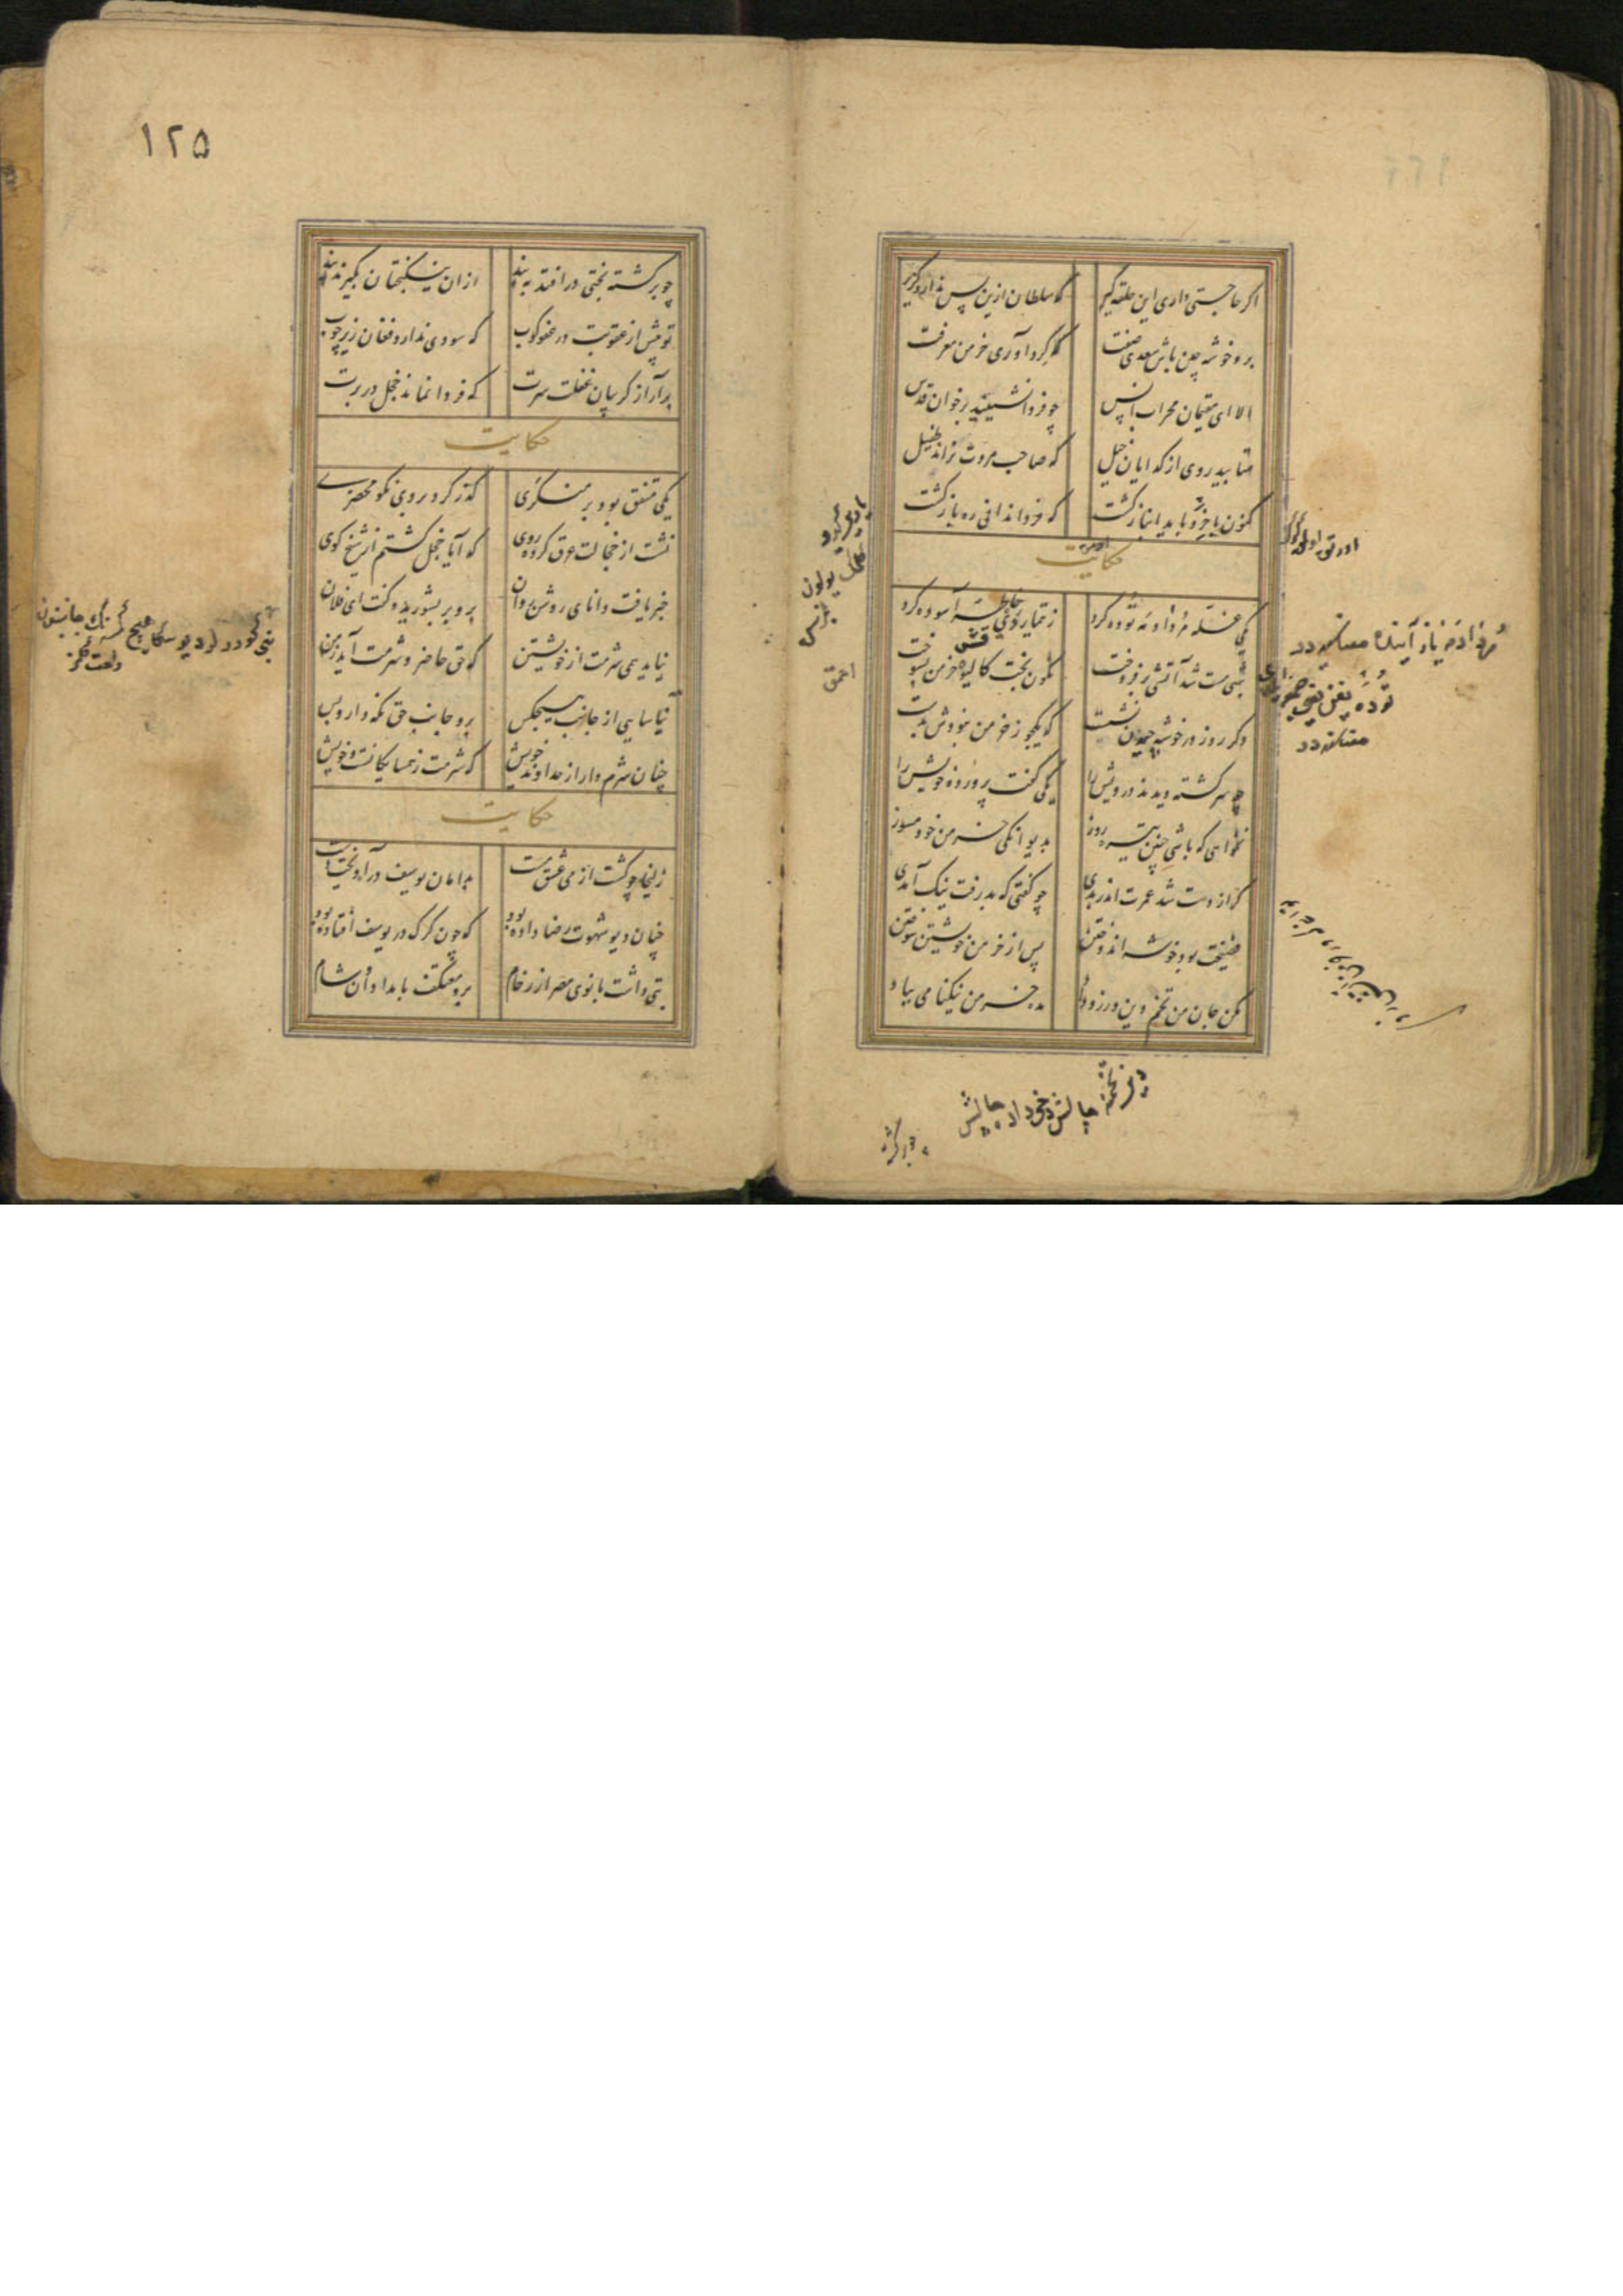 اکر حاجتی داری این حلقه کیر
که سلطان ازین پس ندارد کزیر
برو خوشه چین باش سعدی صفت
که کرد آوری خرمن معرفت
الا ای مقیمان محراب انس
چو فردا نشینید بر خوان قدس
متابید روی از کدایان خیل
که صاحب مروت نراند طفیل
کنون با خرد باید انباز کشت
که فردا نماند ره بازکشت
حکایت
یکی غله مرداد مه توده کرد
ز تیمار دی خاطر آسوده کرد
شبی مست شد آتشی برفروخت
نکون بخت کالیوه خرمن بسوخت
دکر روز در خوشه چیدن نشست
که یکجو ز خرمن نبودش بدست
چو سرکشته دیدند درویش را
یکی کفت پرورده خویش را
نخواهی که باشی چنین تیره روز
بدیوانکی خرمن خود مسوز
کر از دست شد عمرت اندر بدی
چو کفتی که بد رفت نیک آمدی
فضیحت بود خوشه اندوختن
پس از خرمن خویشتن سوختن
مکن جان من تخم دین ورز و داد
مده خرمن نیکنامی بباد
۱۲۵
چو برکشته بختی در افتد به بند
ازان نیکبختان بکیرند پند
تو پیش از عقوبت در عفو کوب
که سودی ندارد فغان زیر چوب
برآر از کریبان غفلت سرت
که فردا نماند خجل در برت
حکایت
یکی متفق بود بر منکری
کذر کرد بر وی نکو محضری
نشست از خجالت عرق کرده روی
که آیا خجل کشتم از شیخ کوی
خبر یافت دانای روشن روان
برو بر بشورید و کفت ای فلان
نیاید همی شرمت از خویشتن
که حق حاضر و شرمت آید ز من
نیاسایی از جانب هیچکس
برو جانب حق نکه دار و بس
چنان شرم دار از خداوند خویش
که شرمت ز همسایکانست و خویش
حکایت
زلیخا چو کشت از می عشق مست
بدامان یوسف در آویخت دست
چنان دیو شهوت رضا داده بود
که چون کرک در یوسف افتاده بود
بتی داشت بانوی مصر از رخام
برو معتکف بامدادان و شام